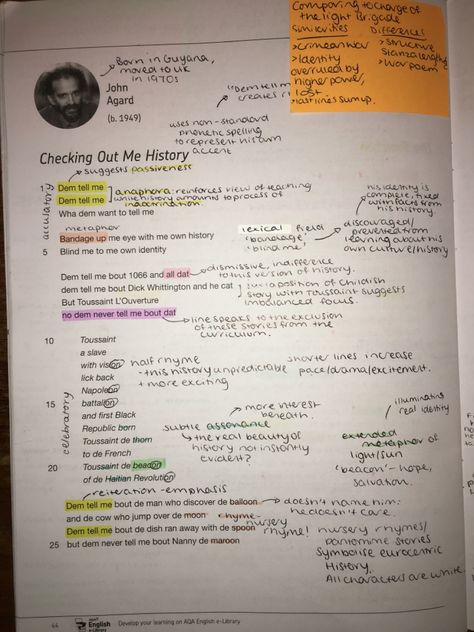 Comparing to charge of
the light Brigade
Similarities
Differences
> crimean war
> Identity
overruled by
higher power,
lost.
> last lines sum up.
> Structure,
Stanza lengths
> War poem
Born in Guyana,
moved to UK
in 1970s
John
Agard
(b. 1949)
"Dem tell m
creates r
uses non-standard
phonetic spelling
to represent his own
accent
Checking Out Me History
suggests passiveness
accusatory
1 Dem tell me
Dem tell me
anaphora: reinforces view of teaching
white history amounts to process of
indoctrination.
Wha dem want to tell me
metaphor
Bandage up me eye with me own history
5 Blind me to me own identity
lexical field
'bandage'
'blind me'
his identity is
complete, fixed
with facts from
his history.
discouraged/
prevented from
learning about his
own culture/history
Dem tell me bout 1066 and all dat
dismissive, indifference
to this version of history.
dem tell me bout Dick Whittington and he cat
But Toussaint L'Ouverture
juxtaposition of childish
story with Toussaint suggests
imbalanced focus.
no dem never tell me bout dat
line speaks to the exclusion
of these stories from the
curriculum.
10 Toussaint
a slave
with vision
lick back
Napoleon
15 battalion
and first Black
Republic born
Toussaint de thorn
to de French
20 Toussaint de beacon
of de Haitian Revolution
celebratory
half rhyme
- this history unpredictable
+ more exciting
shorter lines increase
pace/drama/excitement.
more interest
beneath.
subtle assonance
the real beauty of
history not instantly
evident?
illuminating
real identity
extended
metaphor of
light/sun
'beacon' - hope,
salvation.
reiteration - emphasis
Dem tell me bout de man who discover de balloon
doesn't name him:
he doesn't care.
and de cow who jump over de moon
rhyme -
nursery
rhyme!
Dem tell me bout de dish ran away with de spoon
25 but dem never tell me bout Nanny de maroon
nursery rhymes/
pantomime stories
Symbolise eurocentric
History.
All characters are white
44
AQA
English
e-Library
Develop your learning on AQA English e-Library